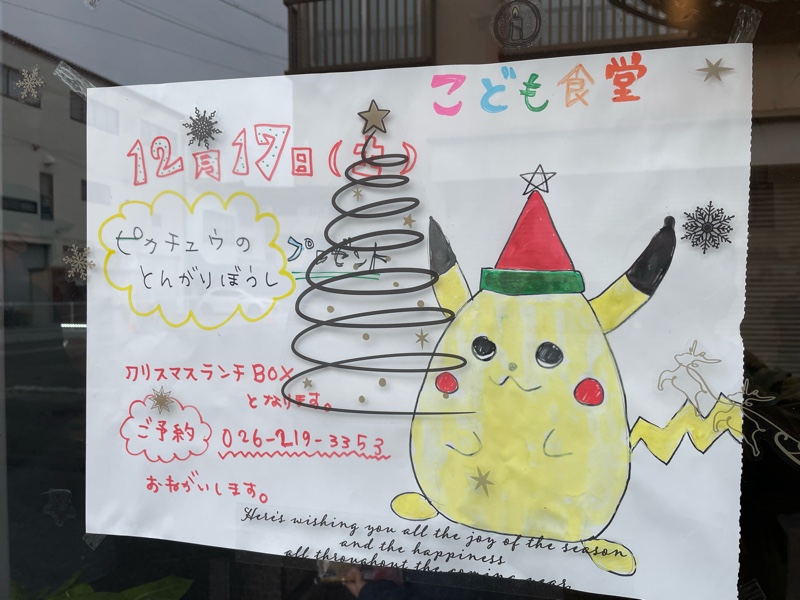 こども食堂
12月17日(土)
ピカチュウの
とんがりぼうし
プレゼント
クリスマスランチBOX
となります。
ご予約
026-219-3353
おねがいします。
Here's wishing you all the joy of the season
and the happiness
all throughout the coming year